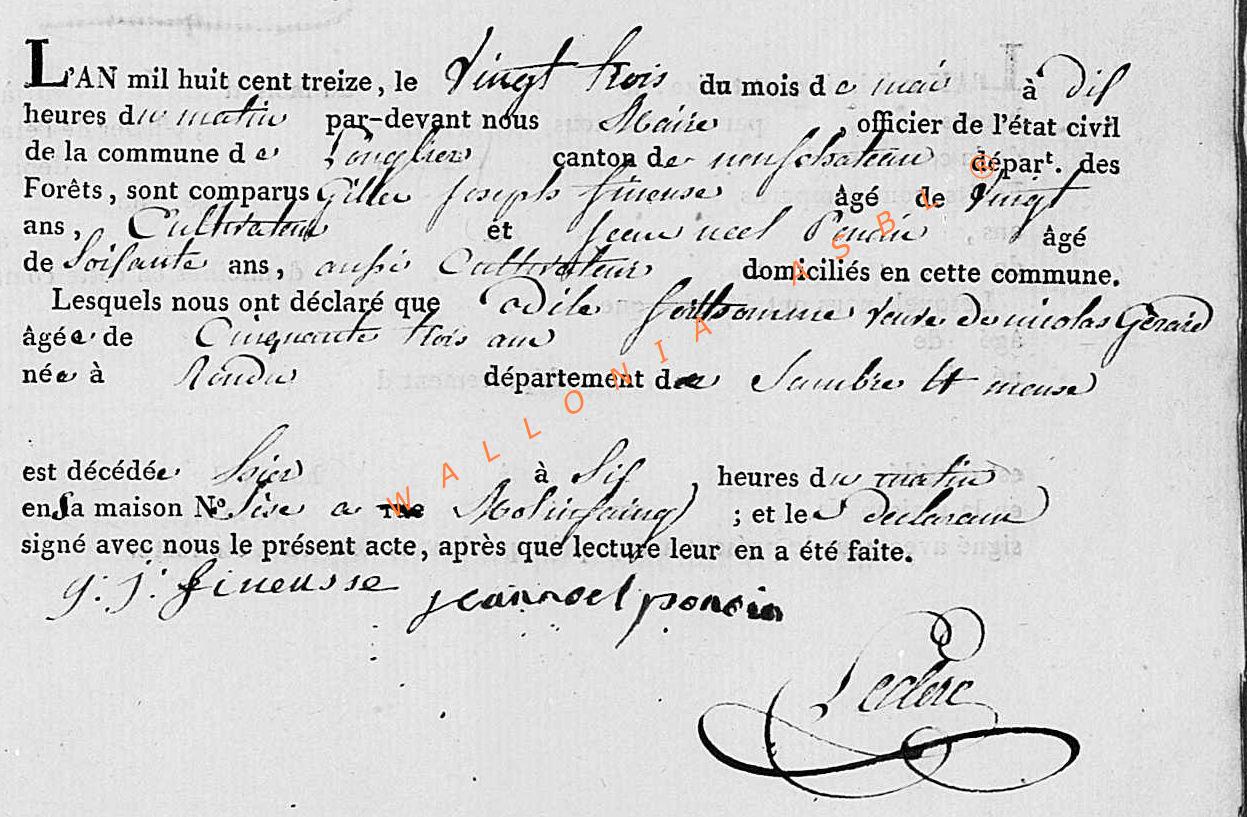 L'AN mil huit cent treize, le Vingt trois du mois de mai à dis
heures du matin par-devant nous Maire, officier de l'état civil
de la commune de Longlier canton de neufchateau départ. des
Forêts, sont comparus Gille Joseph fineuse âgé de Vingt
ans, Cultivateur et Jean noel Poncin âgé
de Soisante ans, aussi Cultivateur domiciliés en cette commune.
Lesquels nous ont déclaré que odile veuve De nicolas Gerard
âgée de Cinquante trois ans
née à Rondu département de Sambre Et meuse
est décédée hier à Sis heures du matin
en sa maison N.o Sise a rue Molinfaing ; et les declarans
signé avec nous le présent acte, après que lecture leur en a été faite.
g. j. fineusse jeannoel poncin
Leclerc
WALLONIA ASBL ®